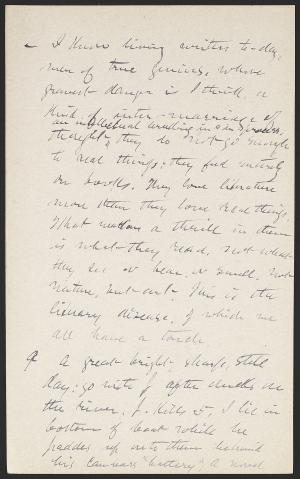 - I know living writers to-day,
men of true genius, whose
gravest danger is I think a
kind of inter-marriage of
an intellectual breeding in &
thought; they do not go enough
to real things; they feed entirely
on books. They love literature
more than they love real things.
What makes a thrill in them
is what they read, not what
they see or hear, or smell. Not
nature, but art. This is the
literary disease, of which we
all have a touch.
9 A great bright, sharp, still
day; go with J. after ducks on
the river. J. kills 5, I lie in
bottom of boat while he
paddles up onto them behind
his canvass "battery". A novel